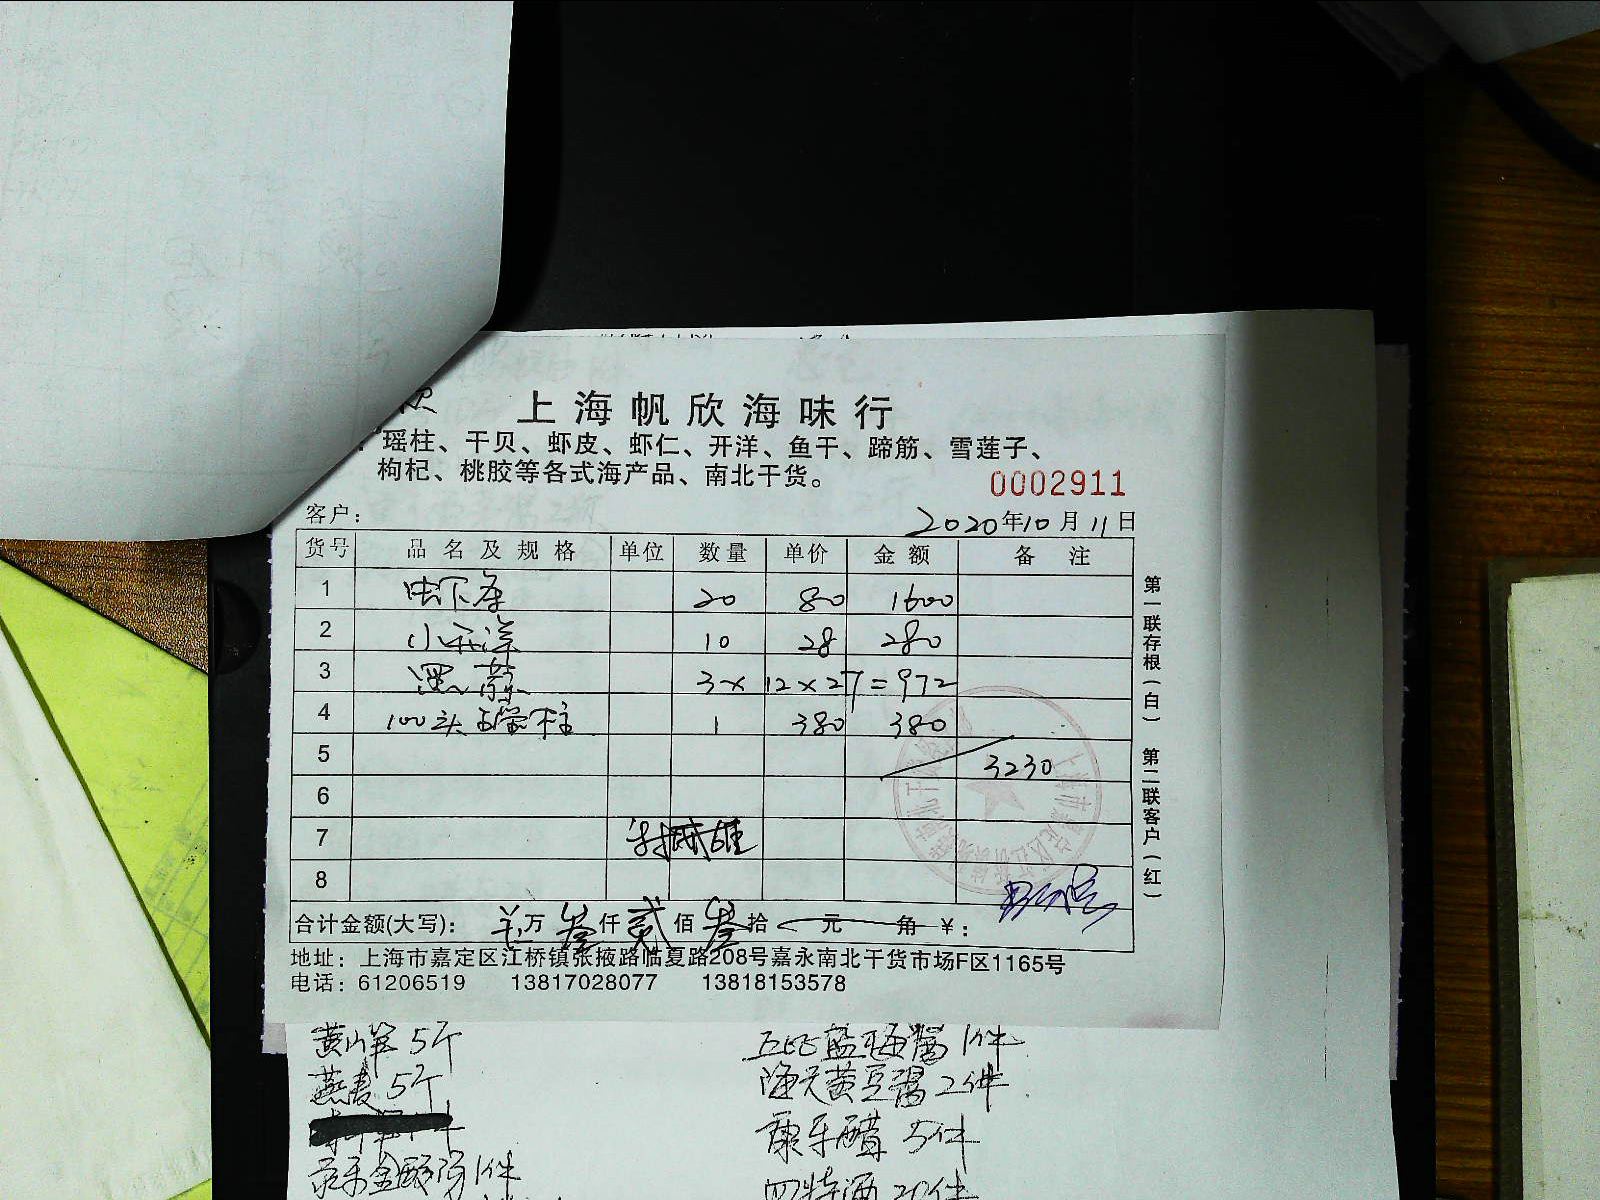 上海帆欣海味行
瑶柱、干贝、虾皮、虾仁、开洋、鱼干、蹄筋、雪莲子、
枸杞、桃胶等各式海产品、南北干货。
0002911
客户： 2020年10月11日
货号 品名及规格 单位 数量 单价 金额 备注
1 20 80 1600
2 小开洋 10 28 280
3 3×12×27=972
4 100头瑶柱 1 380 380
5 3230
6
7
8
合计金额(大写)： 万叁仟贰佰叁拾 元 角 ¥：
地址：上海市嘉定区江桥镇张掖路临夏路208号嘉永南北干货市场F区1165号
电话：61206519 13817028077 13818153578
第一联存根(白) 第二联客户(红)
黄山笋 5个
燕麦 5个
1件
1件
海天黄豆酱 2件
康乐醋 5件
四特酒 20件